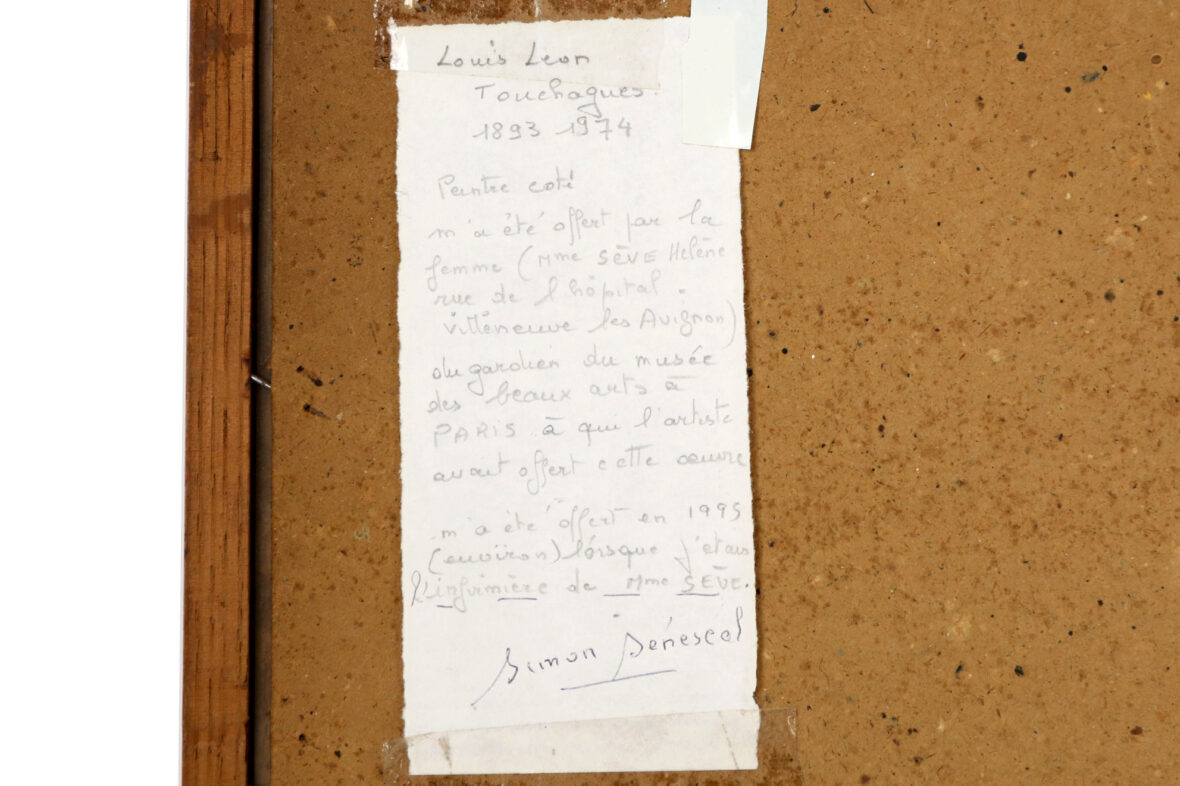 Louis Leon
Touchagues
1893 1974
Peintre coté
m'a été offert par la
femme (Mme SÈVE Helène
rue de l'hôpital.
villeneuve les Avignon)
du gardien du musée
des beaux arts à
PARIS à qui l'artiste
avait offert cette œuvre
m'a été offert en 1995
(environ) lorsque j'étais
l'infirmière de Mme SÈVE.
Simon